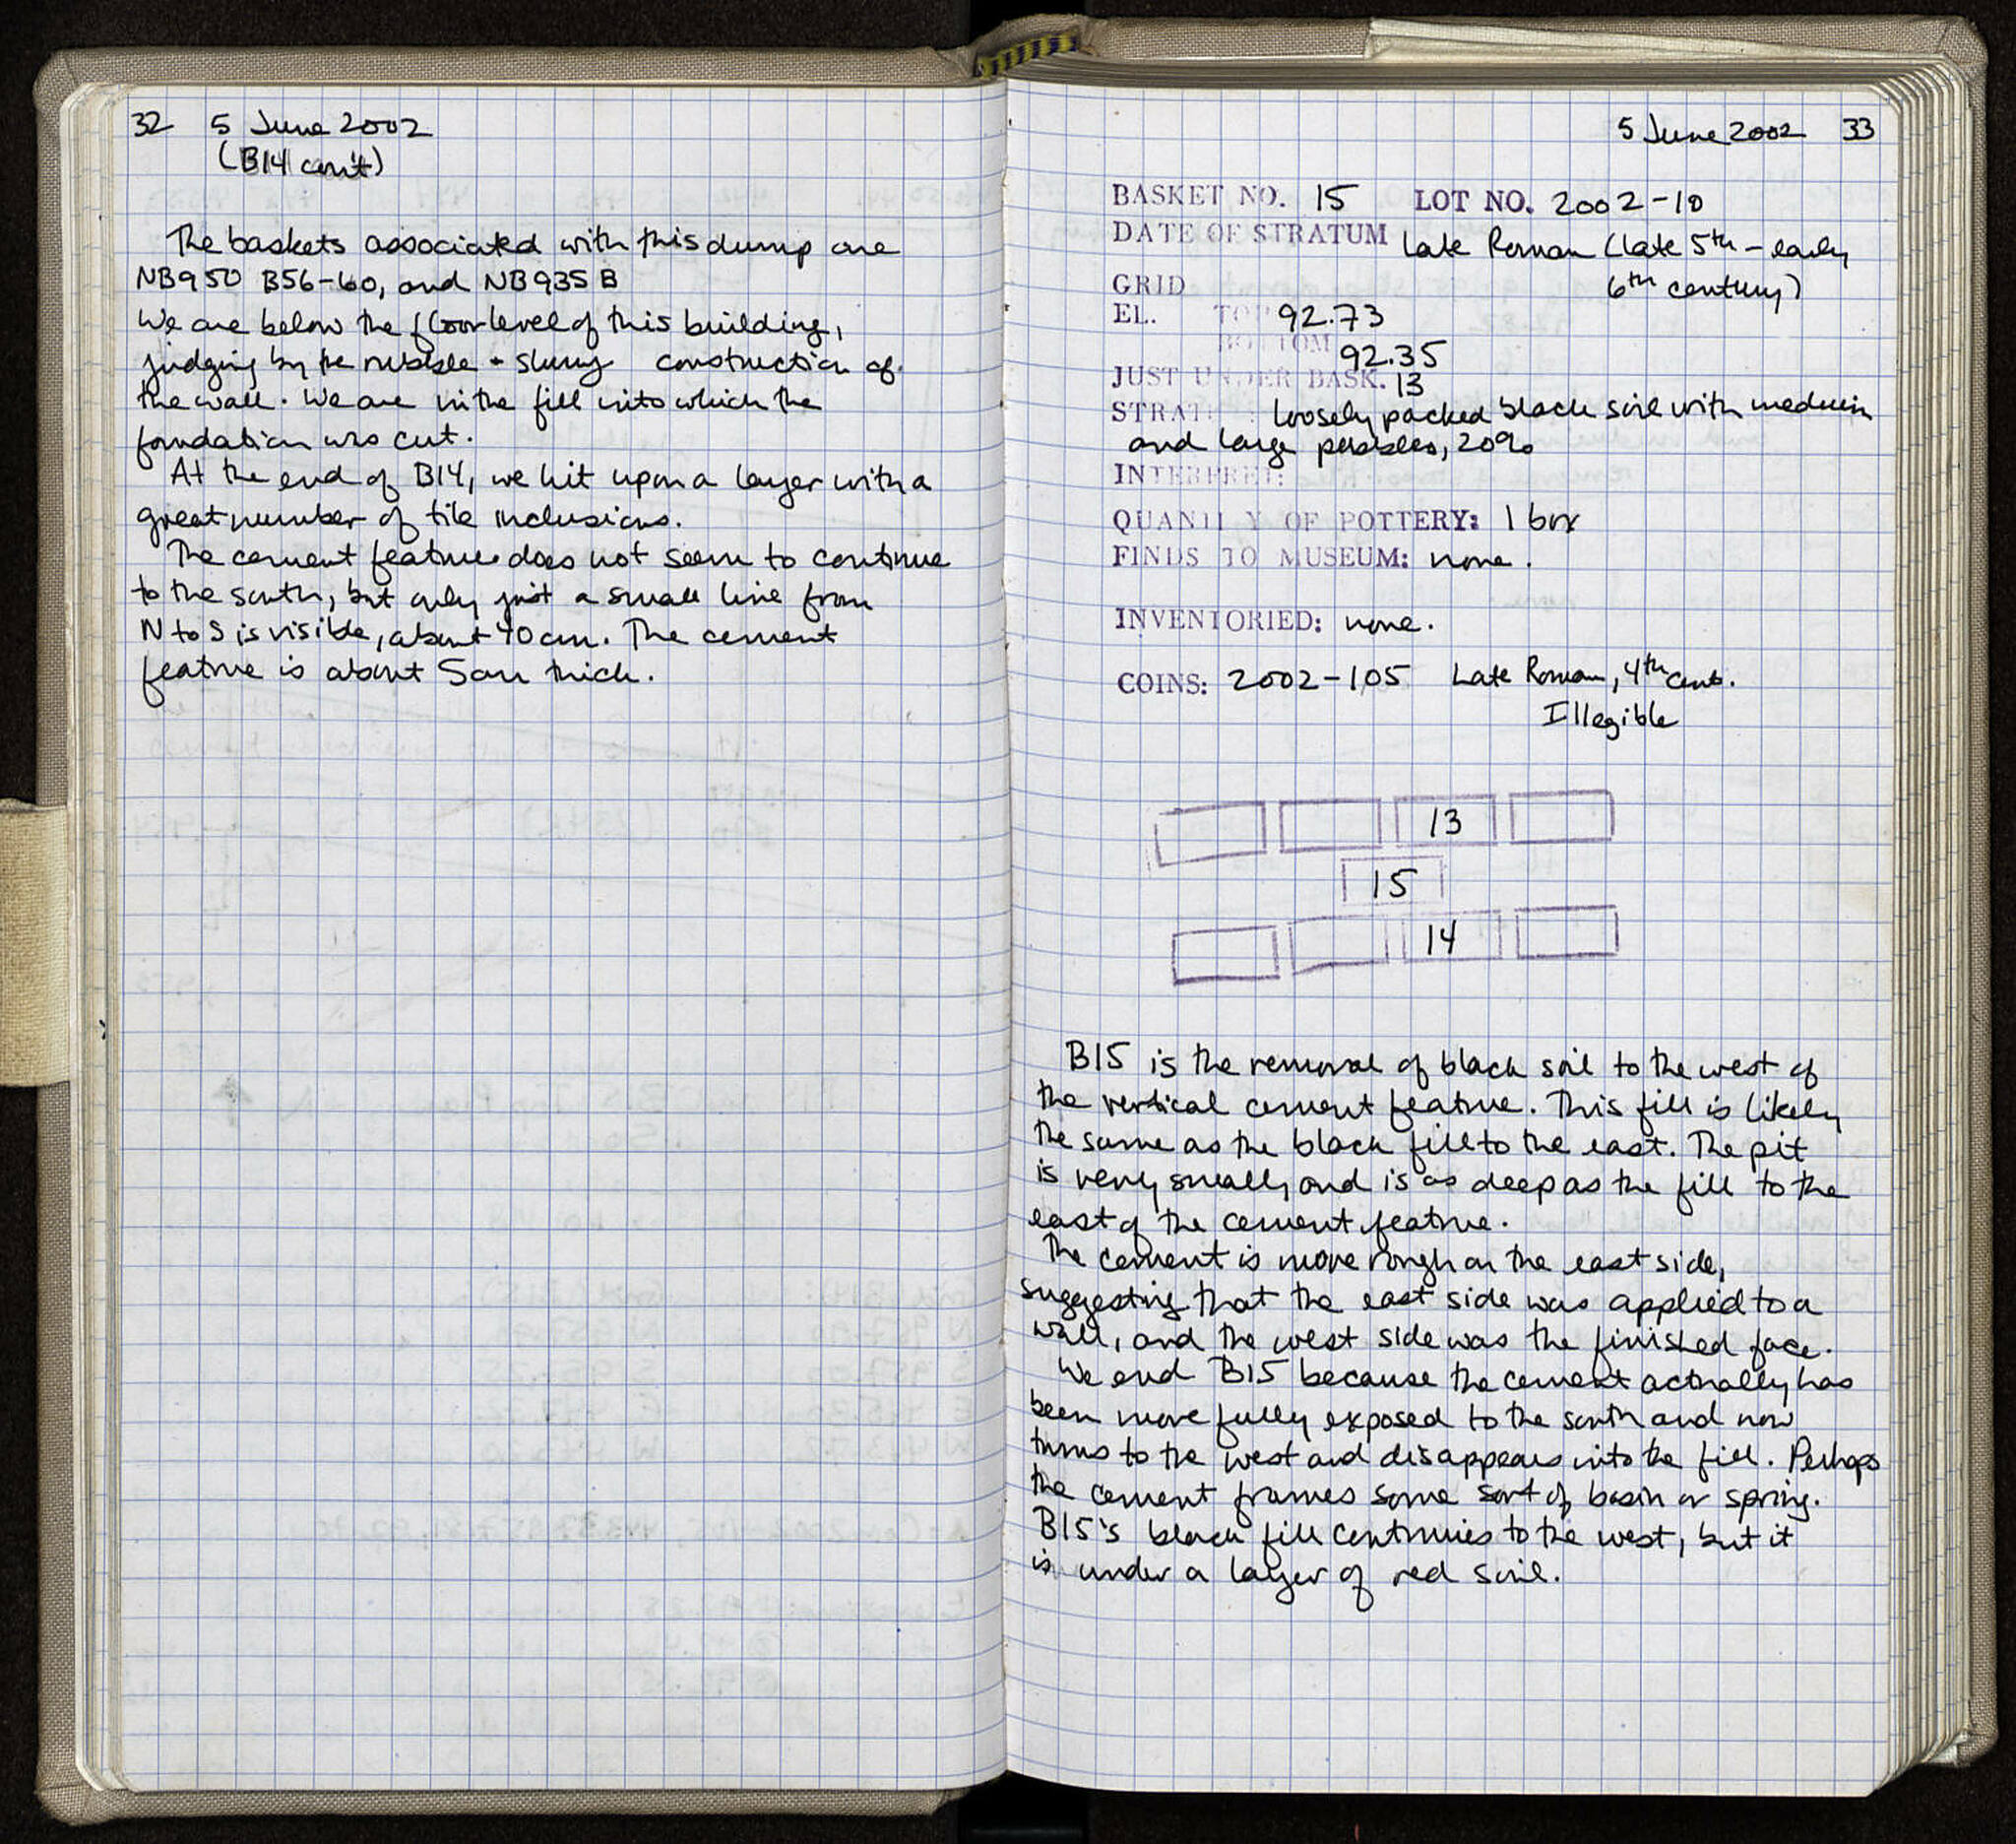 32 5 June 2002
(B14 con't)
The baskets associated with this dump are
NB950 B56-60, and NB935 B
We are below the floor level of this building,
judging by the rubble + slurry construction of
the wall. We are in the fill into which the
foundation was cut.
At the end of B14, we hit upon a layer with a
great number of tile inclusions.
The cement feature does not seem to continue
to the south, but only just a small line from
N to S is visible, about 40 cm. The cement
feature is about 5cm thick.
5 June 2002 33
BASKET NO. 15 LOT NO. 2002-10
DATE OF STRATUM Late Roman (late 5th - early
6th century)
GRID
EL. TOP 92.73
BOTTOM 92.35
JUST UNDER BASK. 13
STRAT loosely packed black soil with medium
and large pebbles, 20%
INTERPRET:
QUANTITY OF POTTERY: 1 box
FINDS TO MUSEUM: none.
INVENTORIED: none.
COINS: 2002-105 Late Roman, 4th cent.
Illegible
13
15
14
B15 is the removal of black soil to the west of
the vertical cement feature. This fill is likely
the same as the black fill to the east. The pit
is very small, and is as deep as the fill to the
east of the cement feature.
The cement is more rough on the east side,
suggesting that the east side was applied to a
wall, and the west side was the finished face.
We end B15 because the cement actually has
been more fully exposed to the south and now
turns to the west and disappears into the fill. Perhaps
the cement frames some sort of basin or spring.
B15's black fill continues to the west, but it
is under a layer of red soil.